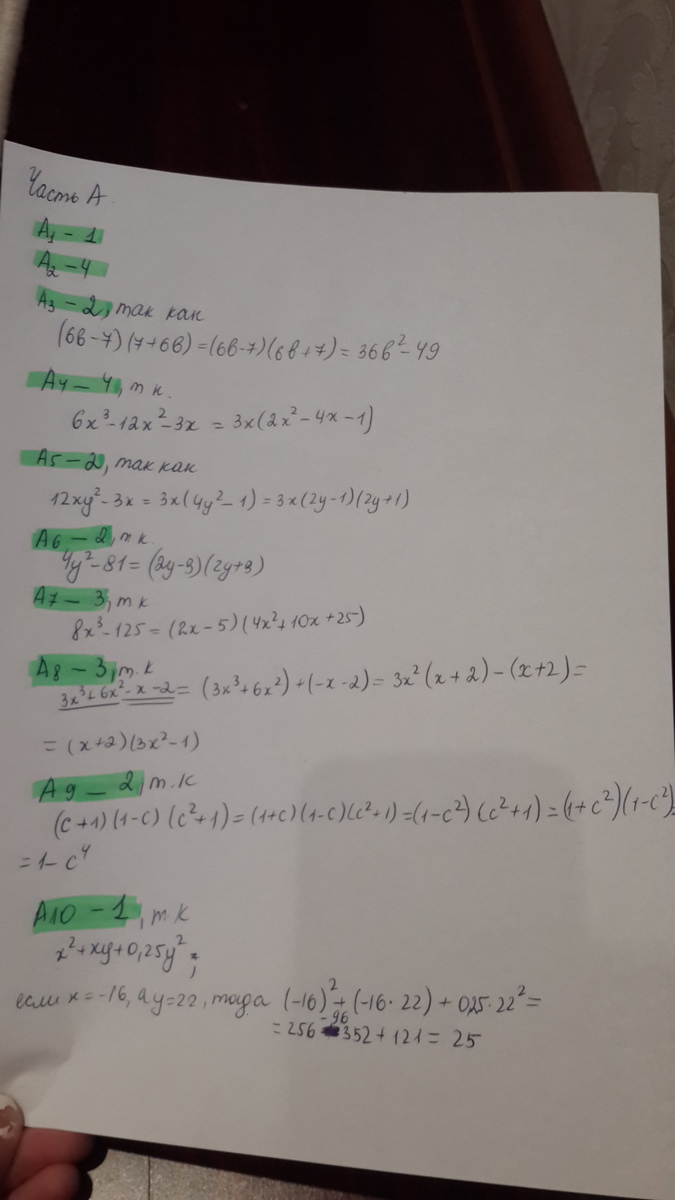 Часть А.
А1 – 1
А2 – 4
А3 – 2, так как
(6b–7)(7+6b)=(6b-7)(6b+7)= 36b²–49
А4 – 4, т к.
6x³–12x²–3x = 3x(2x²–4x–1)
А5 – 2, так как
12xy²–3x = 3x(4y²–1) = 3x(2y–1)(2y+1)
А6 – 2, т к.
4y²–81=(2y–9)(2y+9)
А7 – 3, т к
8x³–125 = (2x–5)(4x²+10x+25)
А8 – 3, т. к
3x³+6x²–x–2 = (3x³+6x²)+(–x–2)= 3x²(x+2)–(x+2)=
= (x+2)(3x²–1)
А9 – 2, т. к
(c+1)(1–c)(c²+1)=(1+c)(1–c)(c²+1)=(1–c²)(c²+1)=(1+c²)(1–c²)=
= 1– c⁴
А10 – 1, т к
x²+xy+0,25y²;
если x=–16, а y=22, тогда (–16)²+(–16·22)+025·22²=
–96
= 256 – 352 + 121 = 25